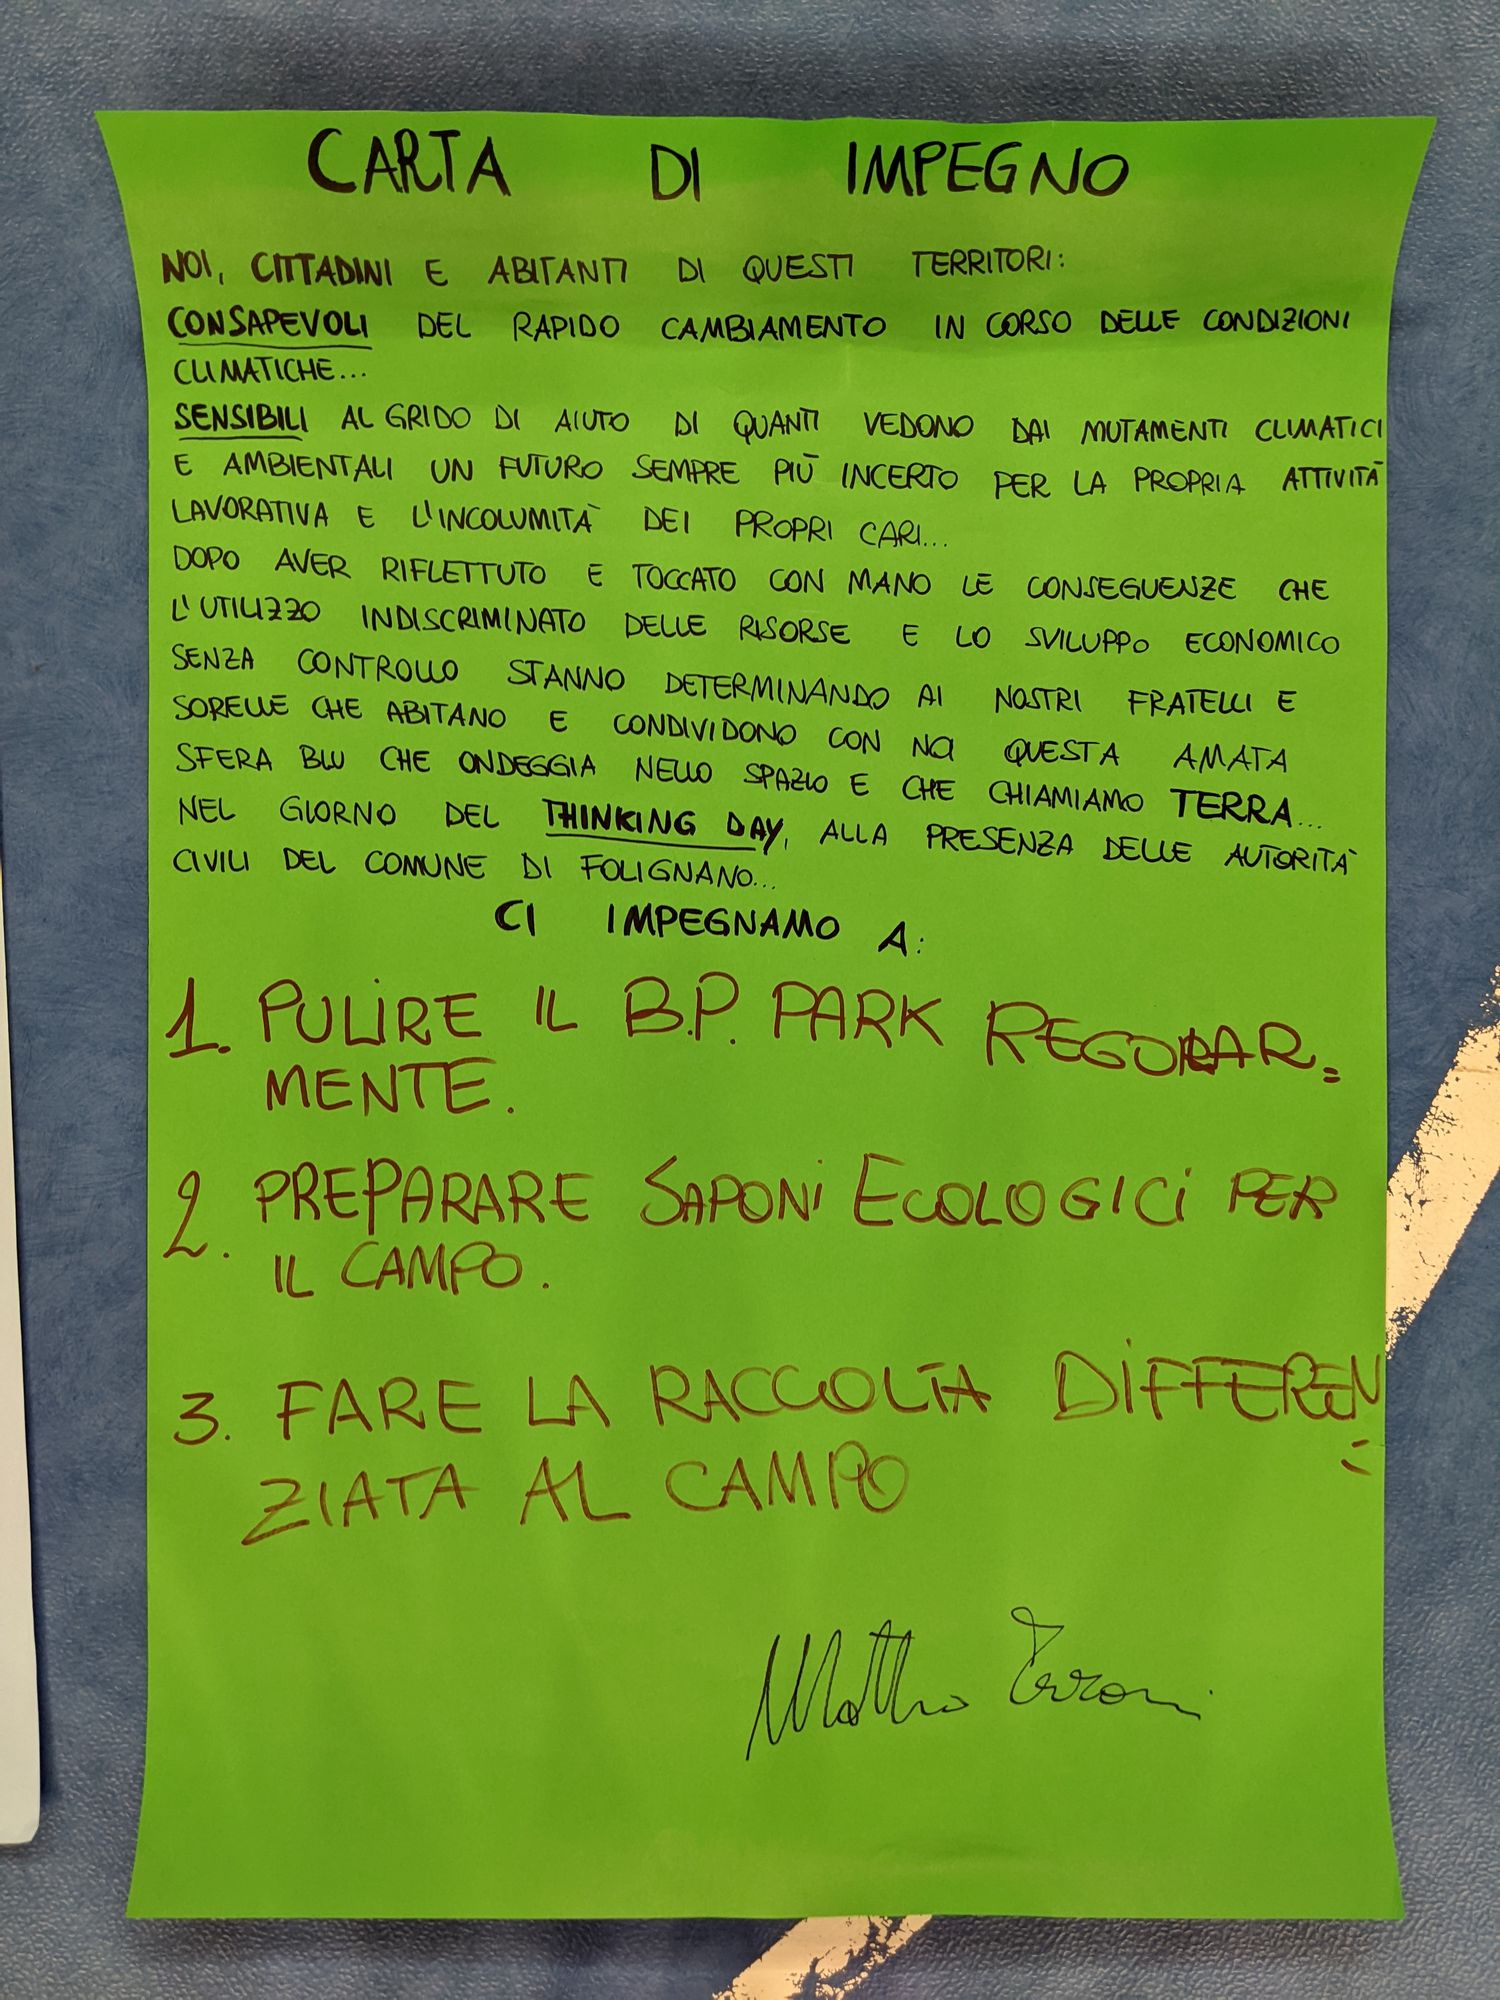 CARTA DI IMPEGNO
NOI, CITTADINI E ABITANTI DI QUESTI TERRITORI:
CONSAPEVOLI DEL RAPIDO CAMBIAMENTO IN CORSO DELLE CONDIZIONI
CLIMATICHE...
SENSIBILI AL GRIDO DI AIUTO DI QUANTI VEDONO DAI MUTAMENTI CLIMATICI
E AMBIENTALI UN FUTURO SEMPRE PIÙ INCERTO PER LA PROPRIA ATTIVITÀ
LAVORATIVA E L'INCOLUMITÀ DEI PROPRI CARI...
DOPO AVER RIFLETTUTO E TOCCATO CON MANO LE CONSEGUENZE CHE
L'UTILIZZO INDISCRIMINATO DELLE RISORSE E LO SVILUPPO ECONOMICO
SENZA CONTROLLO STANNO DETERMINANDO AI NOSTRI FRATELLI E
SORELLE CHE ABITANO E CONDIVIDONO CON NOI QUESTA AMATA
SFERA BLU CHE ONDEGGIA NELLO SPAZIO E CHE CHIAMIAMO TERRA...
NEL GIORNO DEL THINKING DAY, ALLA PRESENZA DELLE AUTORITÀ
CIVILI DEL COMUNE DI FOLIGNANO...
CI IMPEGNAMO A:
1. PULIRE IL B.P. PARK REGOLAR=
MENTE.
2. PREPARARE SAPONI ECOLOGICI PER
IL CAMPO.
3. FARE LA RACCOLTA DIFFEREN=
ZIATA AL CAMPO
Matteo Terrani